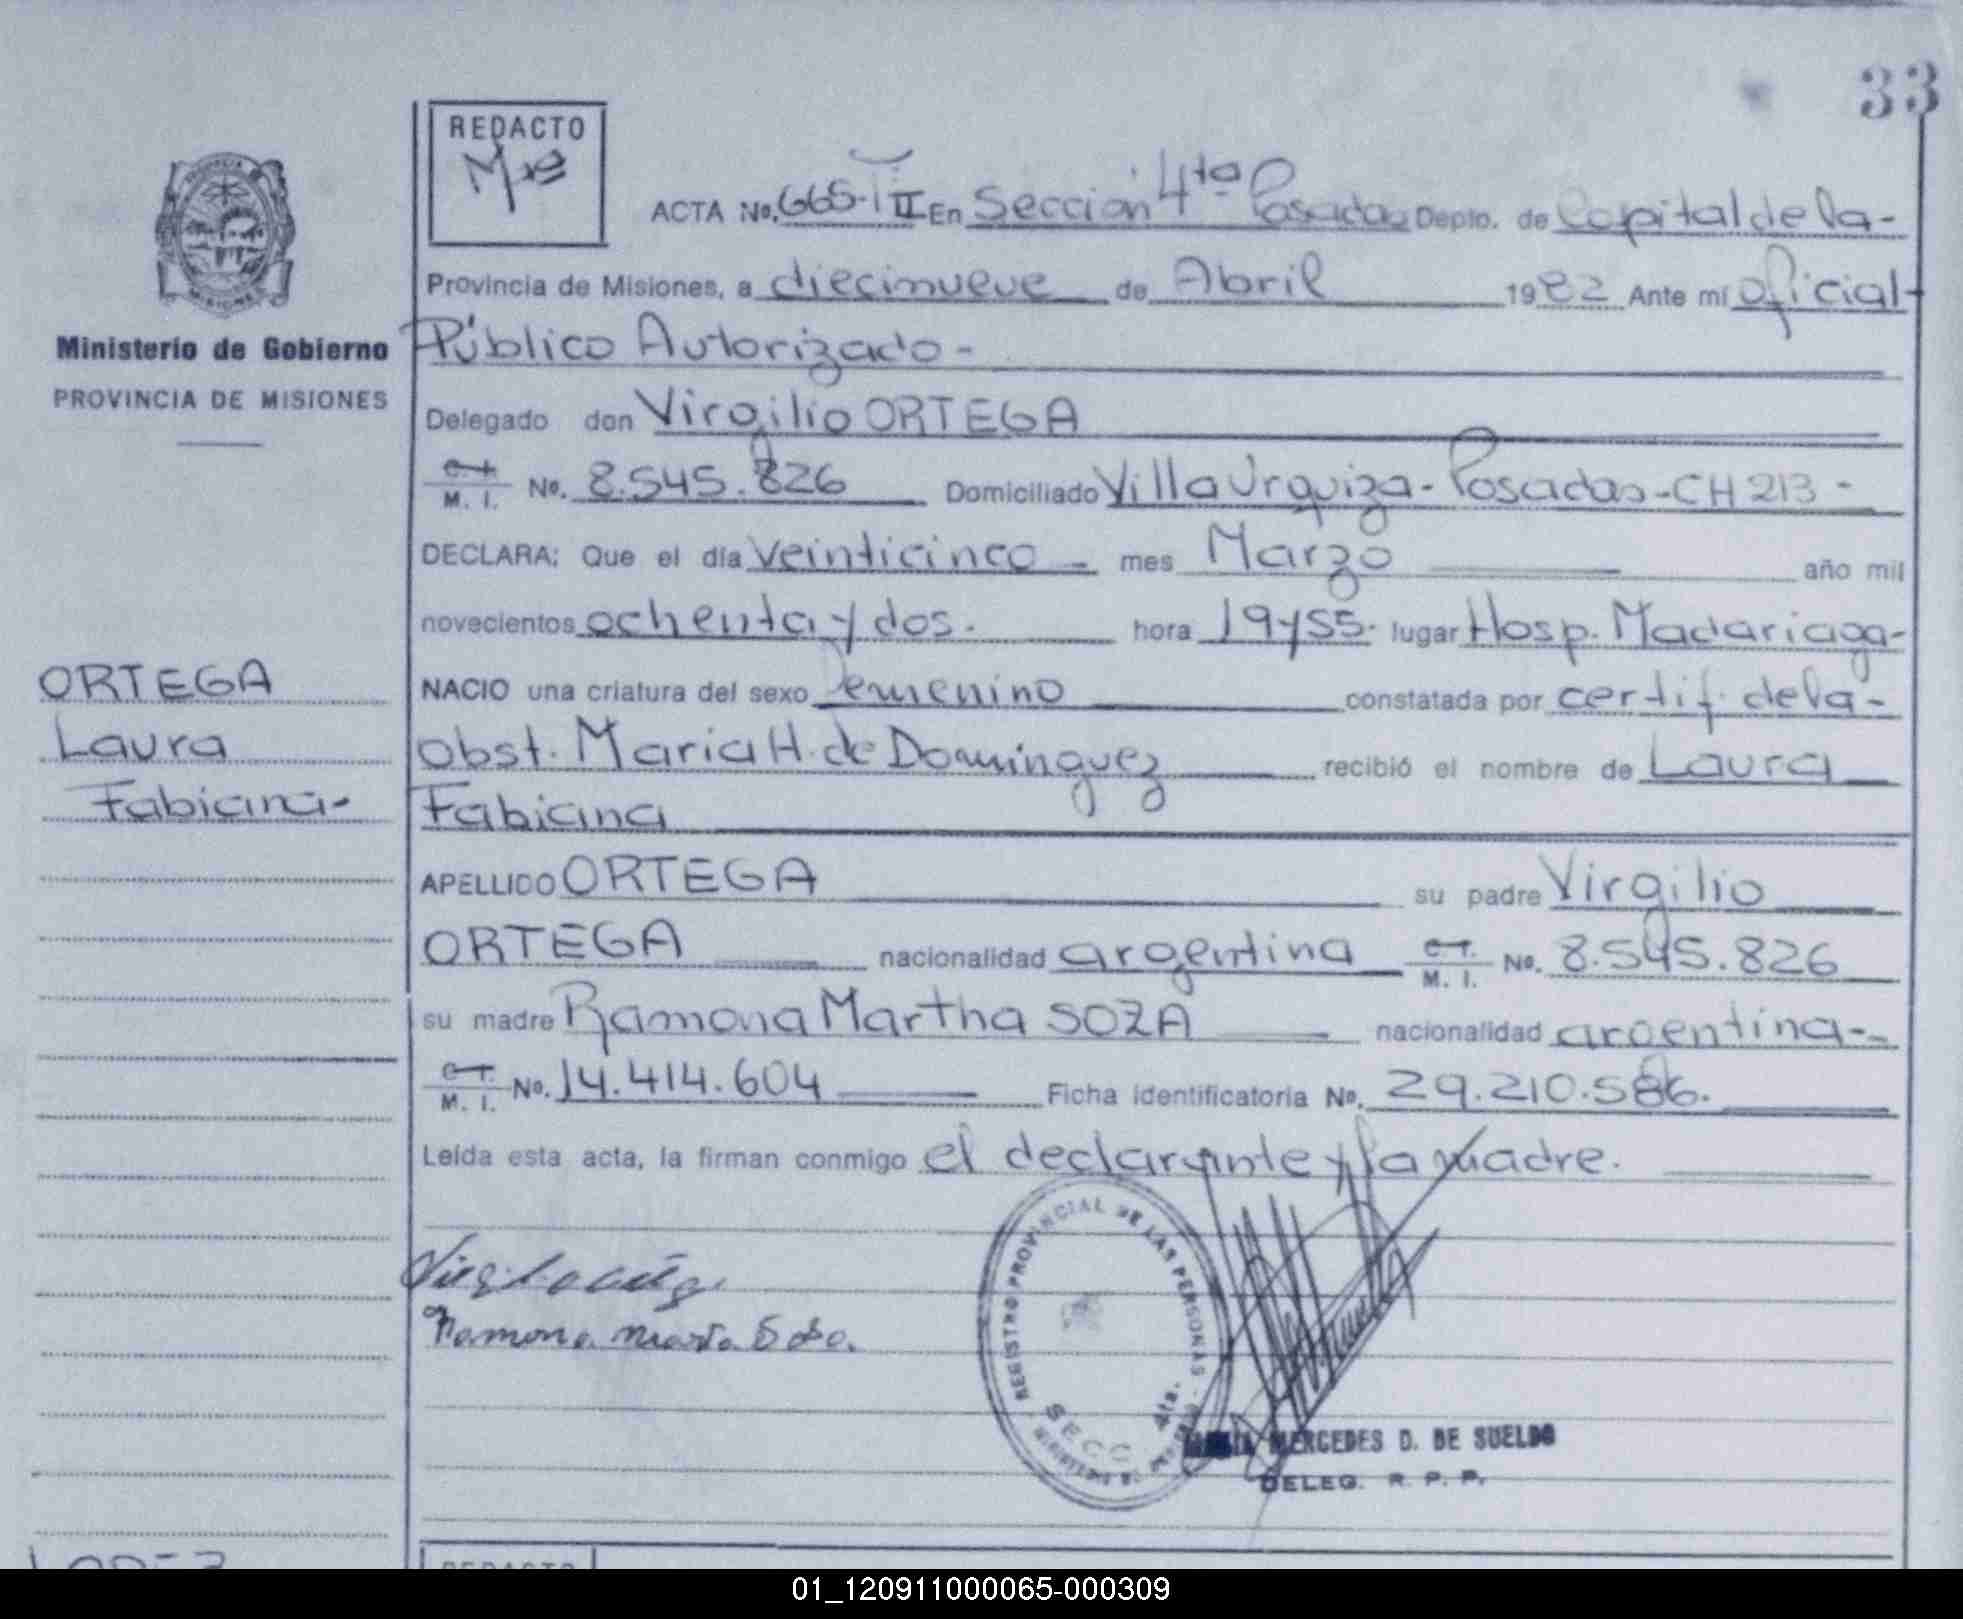 33
REDACTO
ACTA No. 665-T II En Sección 4ta Posadas Depto. de Capital de la-
Provincia de Misiones, a diecinueve de Abril 1982 Ante mí oficial
Público Autorizado-
Ministerio de Gobierno
PROVINCIA DE MISIONES
Delegado don Virgilio ORTEGA
C.I. M. I. No. 8.545.826 Domiciliado Villa Urquiza- Posadas-CH 213-
DECLARA: Que el día veinticinco- mes Marzo año mil
novecientos ochenta y dos. hora 19y55. lugar Hosp. Madariaga-
ORTEGA
Laura
Fabiana-
NACIO una criatura del sexo Femenino constatada por certif. de la-
Obst. Maria H. de Domínguez recibió el nombre de Laura
Fabiana
APELLIDO ORTEGA su padre Virgilio
ORTEGA nacionalidad argentina C.I. M. I. No. 8.545.826
su madre Ramona Martha SOZA nacionalidad argentina--
C.I. M. I. No. 14.414.604 Ficha identificatoria No. 29.210.586.
Leída esta acta, la firman conmigo el declarante y la madre.
REGISTRO PROVINCIAL DE LAS PERSONAS
SECC 4ta.
MERCEDES D. DE SUELDO
DELEG. R. P. P.
LOPEZ
REDACTO
01_120911000065-000309